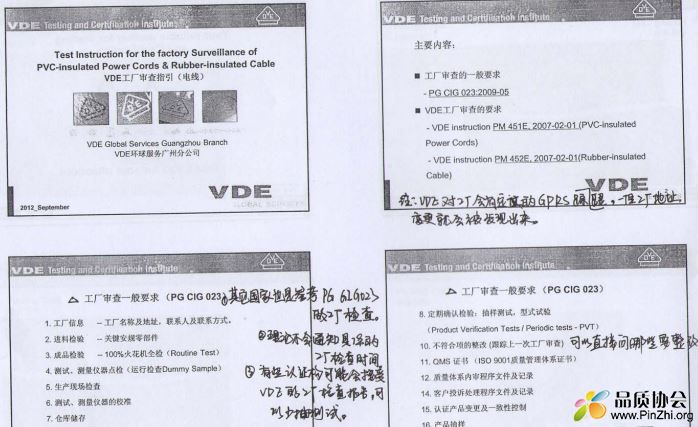 VDE Testing and Certification Institute
Test Instruction for the factory Surveillance of
PVC-insulated Power Cords & Rubber-insulated Cable
VDE工厂审查指引（电线）
VDE Global Services Guangzhou Branch
VDE环球服务广州分公司
VDE
GLOBAL SERVICES
2012_September
VDE Testing and Certification Institute
主要内容:
■ 工厂审查的一般要求
- PG CIG 023:2009-05
■ VDE工厂审查的要求
- VDE instruction PM 451E, 2007-02-01 (PVC-insulated
Power Cords)
- VDE instruction PM 452E, 2007-02-01(Rubber-insulated
Cable)
VDE
注: VDE对工厂会有定位的GPRS跟踪，一但工厂地址
变更就会被发现出来。
VDE Testing and Certification Institute
△ 工厂审查一般要求（PG CIG 023）
1. 工厂信息 -- 工厂名称及地址，联系人及联系方式。
2. 进料检验 -- 关键安规零部件
3. 成品检验 -- 100%火花机全检（Routine Test）
4. 测试、测量仪器点检（运行检查Dummy Sample）
5. 生产现场检查
6. 测试、测量仪器的校准
7. 仓库储存
国家也是参考PG CIG023
做工厂检查。
②理论不会通知具体的
工厂检查时间
③有些认证检可能会接受
VDE的工厂检查报告，可
测试。
VDE Testing and Certification Institute
△ 工厂审查一般要求（PG CIG 023）
8. 定期确认检验: 抽样测试，型式试验
（Product Verification Tests / Periodic tests - PVT）
10. 不符合项的整改（跟踪上一次工厂审查）
可以直接问哪些要整改
11. QMS 证书（ISO 9001质量管理体系证书）
12. 质量体系内审程序文件及记录
14. 客户投诉处理程序文件及记录
15. 认证产品变更及一致性控制
16. 产品抽样
品质协会
www.PinZhi.org